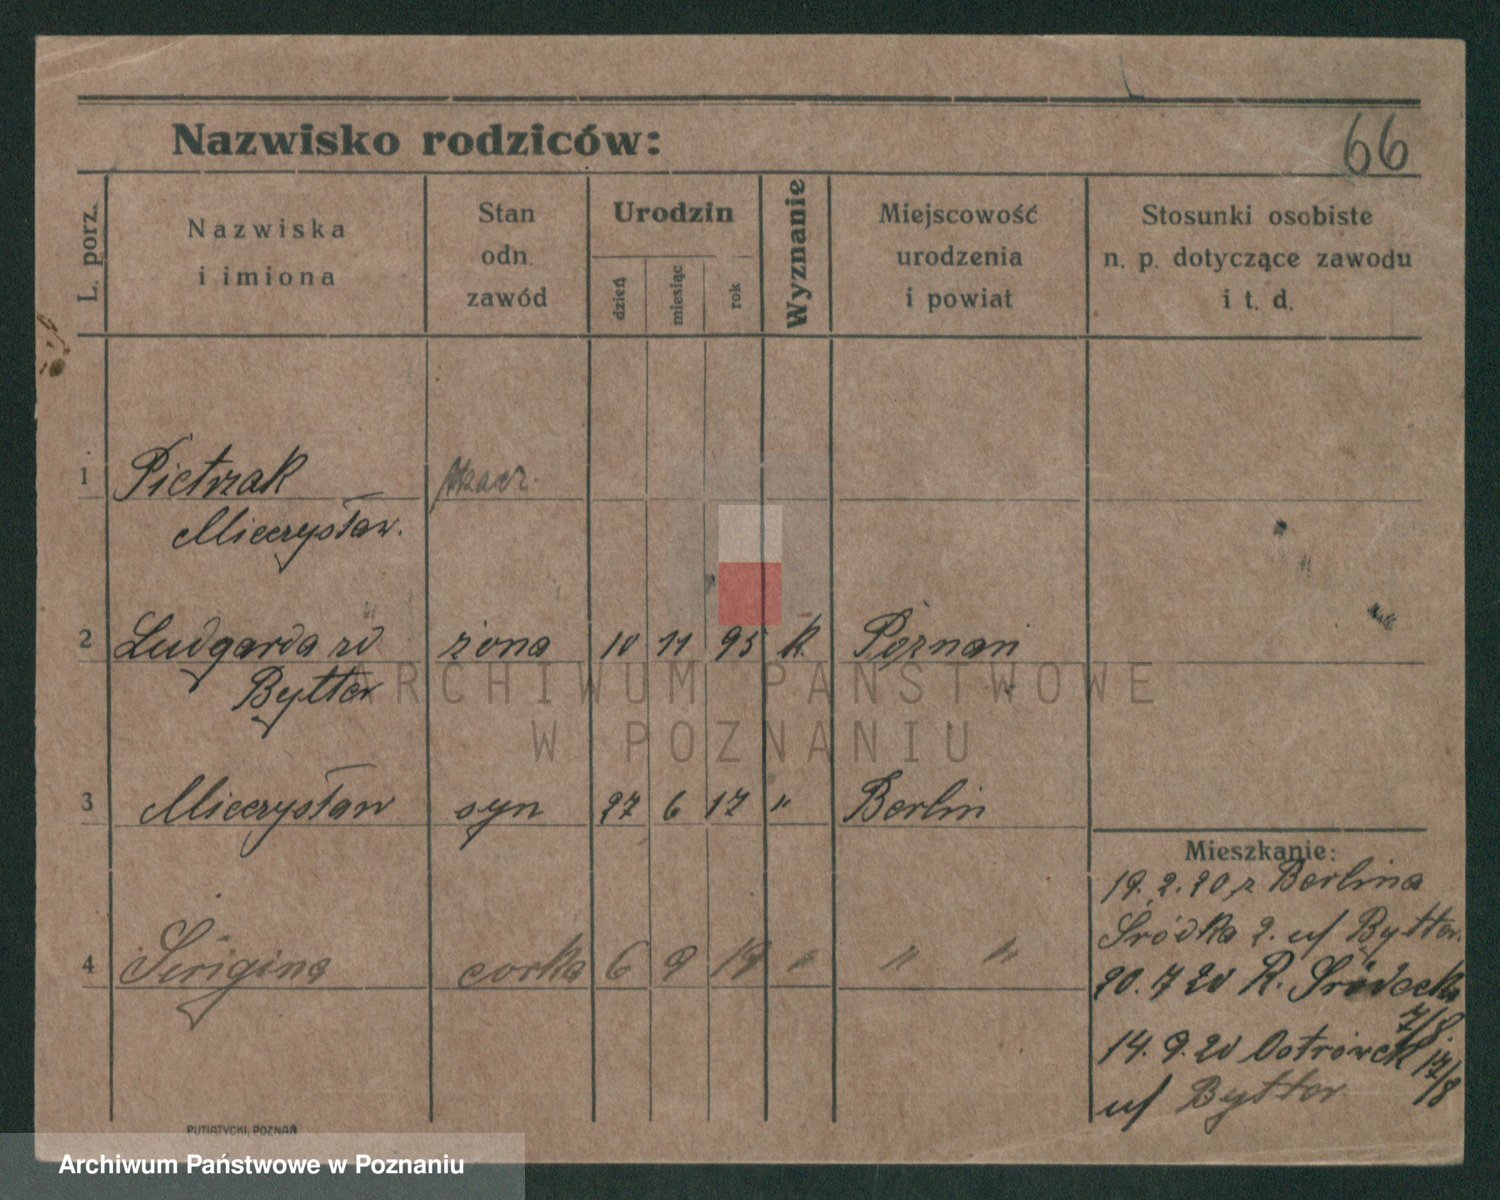 Nazwisko rodziców:
66
L. porz.
Nazwiska
i imiona
Stan
odn.
zawód
Urodzin
dzień
miesiąc
rok
Wyznanie
Miejscowość
urodzenia
i powiat
Stosunki osobiste
n. p. dotyczące zawodu
i t. d.
1 Pietrzak
Mieczysław.
2 Ludgarda zd żona 10 11 95 k. Poznań
Byttor
3 Mieczysław syn 27 6 17 " Berlin
4 córka 6 9 19 " " "
Mieszkanie:
19.2.20 z Berlina
Śródka 2. u/ Byttor.
20.7 20 R. Śródecki
7/8.
14.9.20 Ostrówek 17/8
u/ Byttor
PUTIATYCKI, POZNAŃ
ARCHIWUM PAŃSTWOWE
W POZNANIU
Archiwum Państwowe w Poznaniu